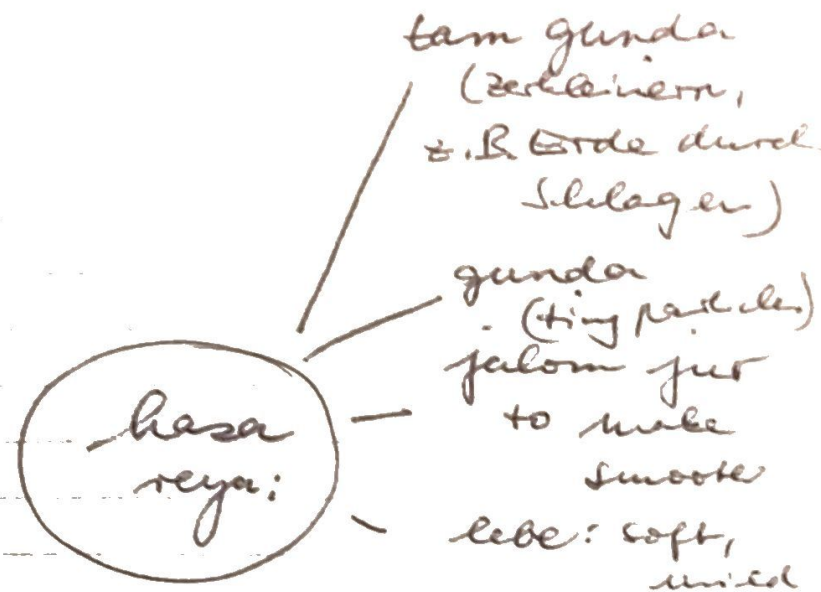 tam gunda
(zerkleinern,
z.B. Erde durch
Schlagen)
gunda
(tiny particles)
jalom jur
to make
smooth
lebe: soft,
mild
hasa
reya: